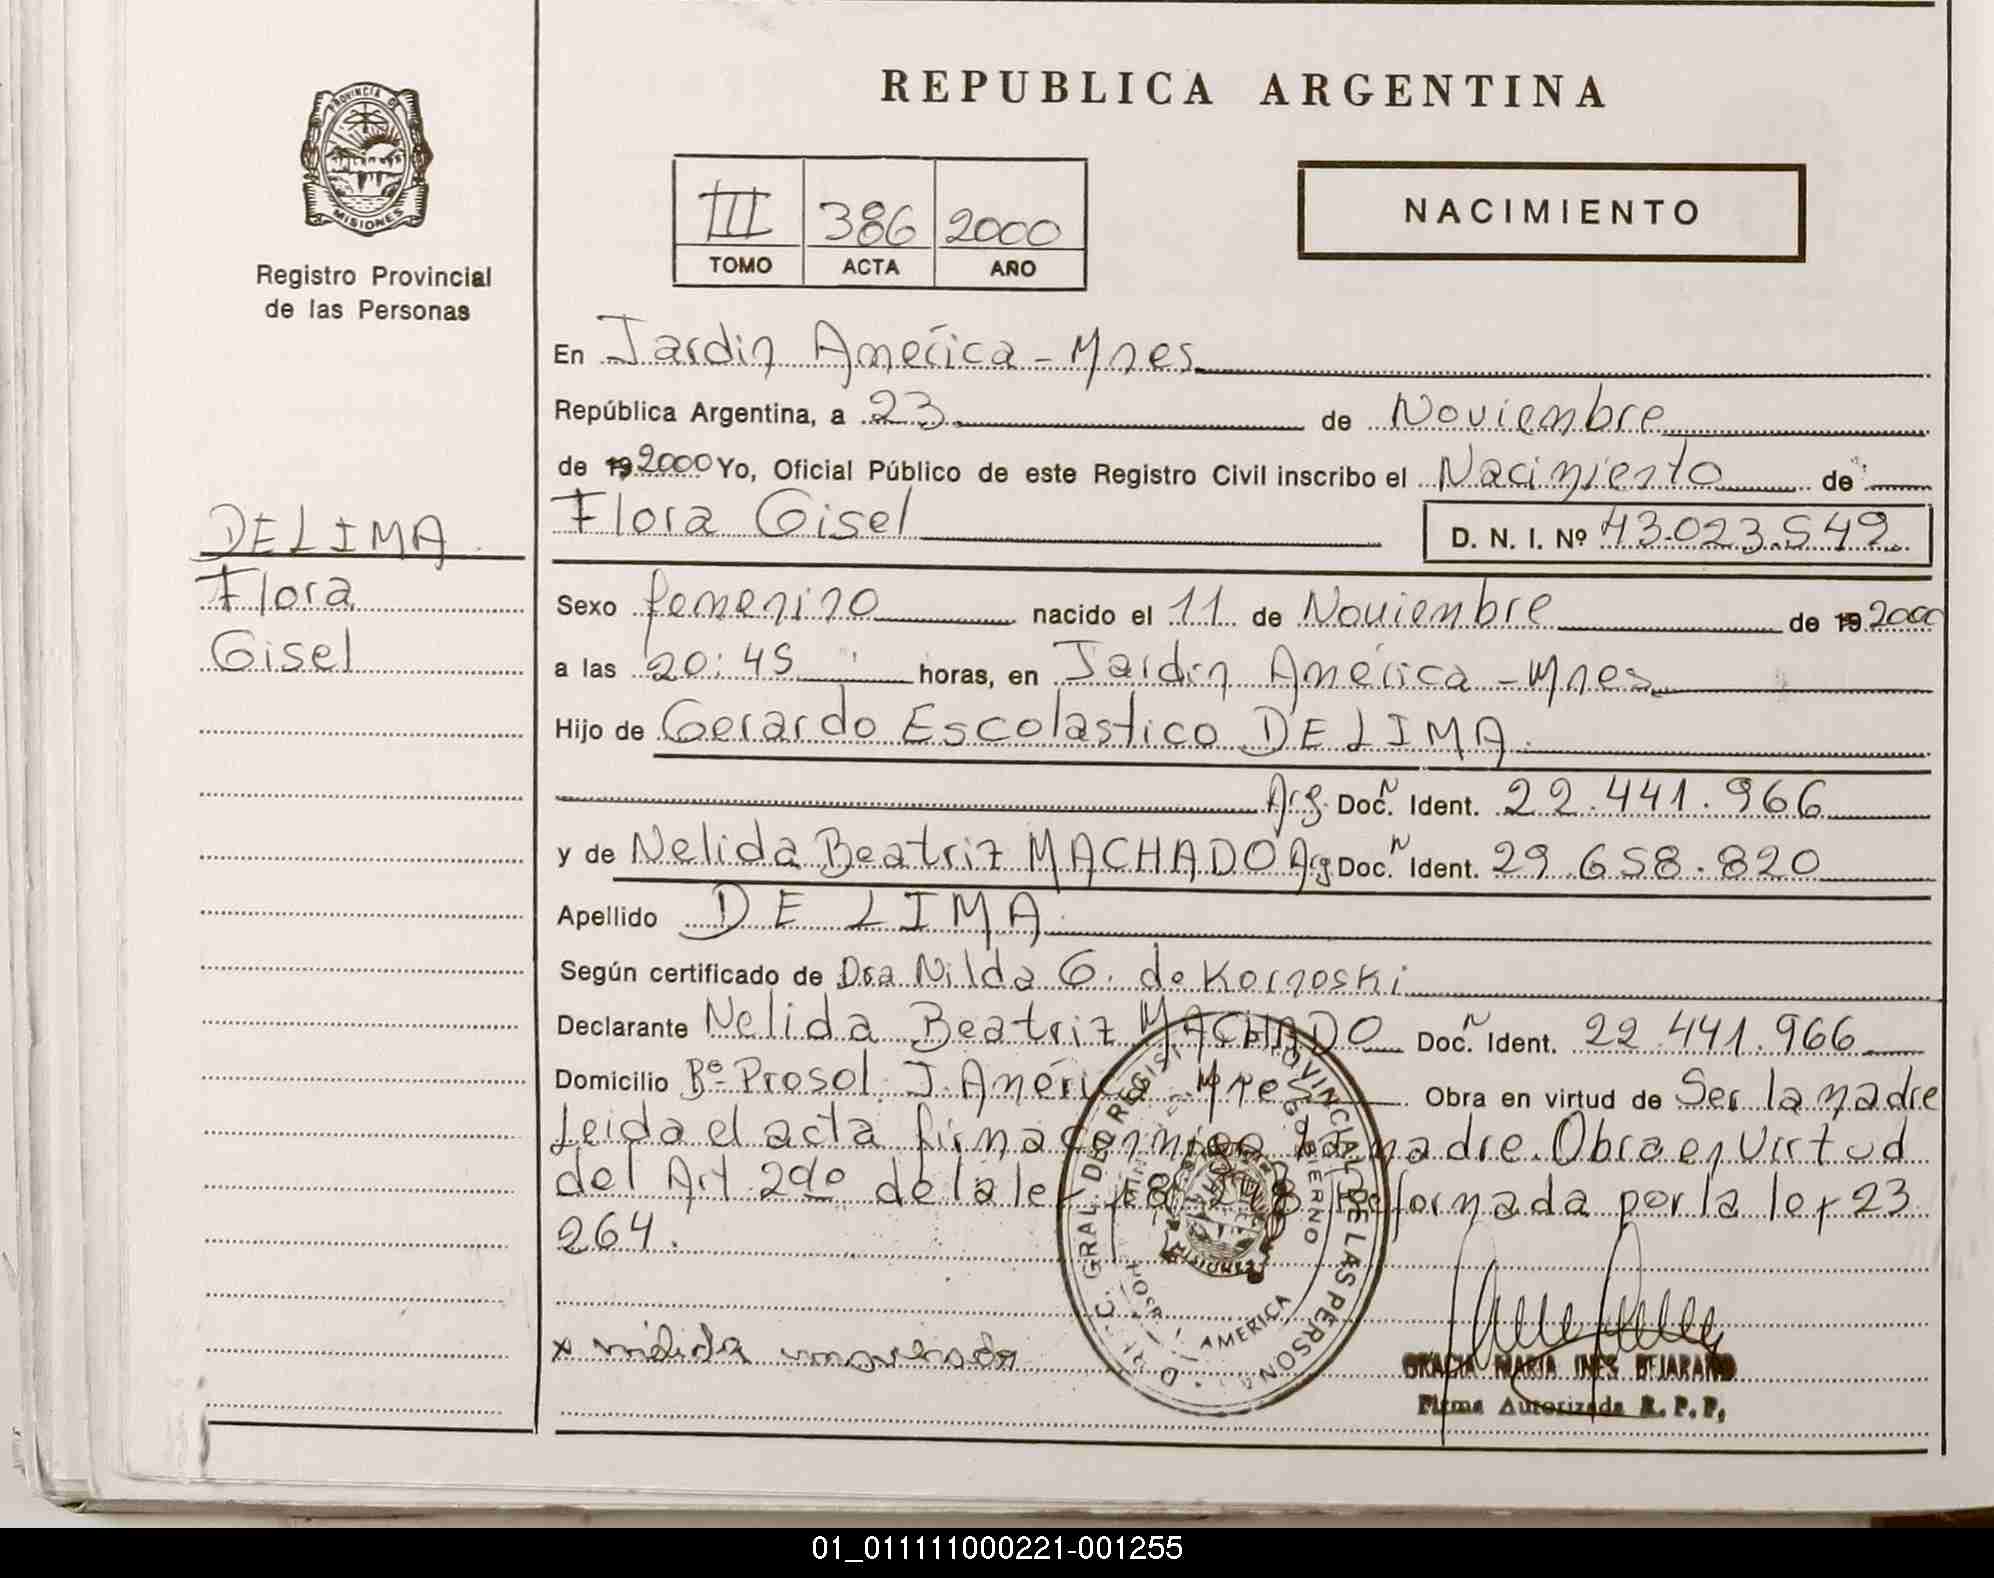 PROVINCIA DE
MISIONES
Registro Provincial
de las Personas
DE LIMA
Flora
Gisel
REPUBLICA ARGENTINA
III 386 2000
TOMO ACTA AÑO
NACIMIENTO
En Jardin América - Mnes
República Argentina, a 23 de Noviembre
de 19 2000 Yo, Oficial Público de este Registro Civil inscribo el Nacimiento de
Flora Gisel D. N. I. Nº 43.023.549
Sexo femenino nacido el 11 de Noviembre de 19 2000
a las 20:45 horas, en Jardin América - Mnes
Hijo de Gerardo Escolastico DE LIMA
Arg. Doc. N Ident. 22.441.966
y de Nelida Beatriz MACHADO Arg Doc. N Ident. 29.658.820
Apellido DE LIMA
Según certificado de Dra Nilda G. de Kornoski
Declarante Nelida Beatriz MACHADO Doc. N Ident. 22.441.966
Domicilio Bº Prosol J. América Mnes Obra en virtud de Ser la madre
Leida el acta firma conmigo la madre. Obra en virtud
del Art 2do de la ley 18.248 reformada por la ley 23
264.
GRAL. DEL REGISTRO PROVINCIAL DE LAS PERSONAS
GOBIERNO
AMERICA
MISIONES
GRACIA MARIA INES BEJARANO
Firma Autorizada R. P. P.
01_011111000221-001255